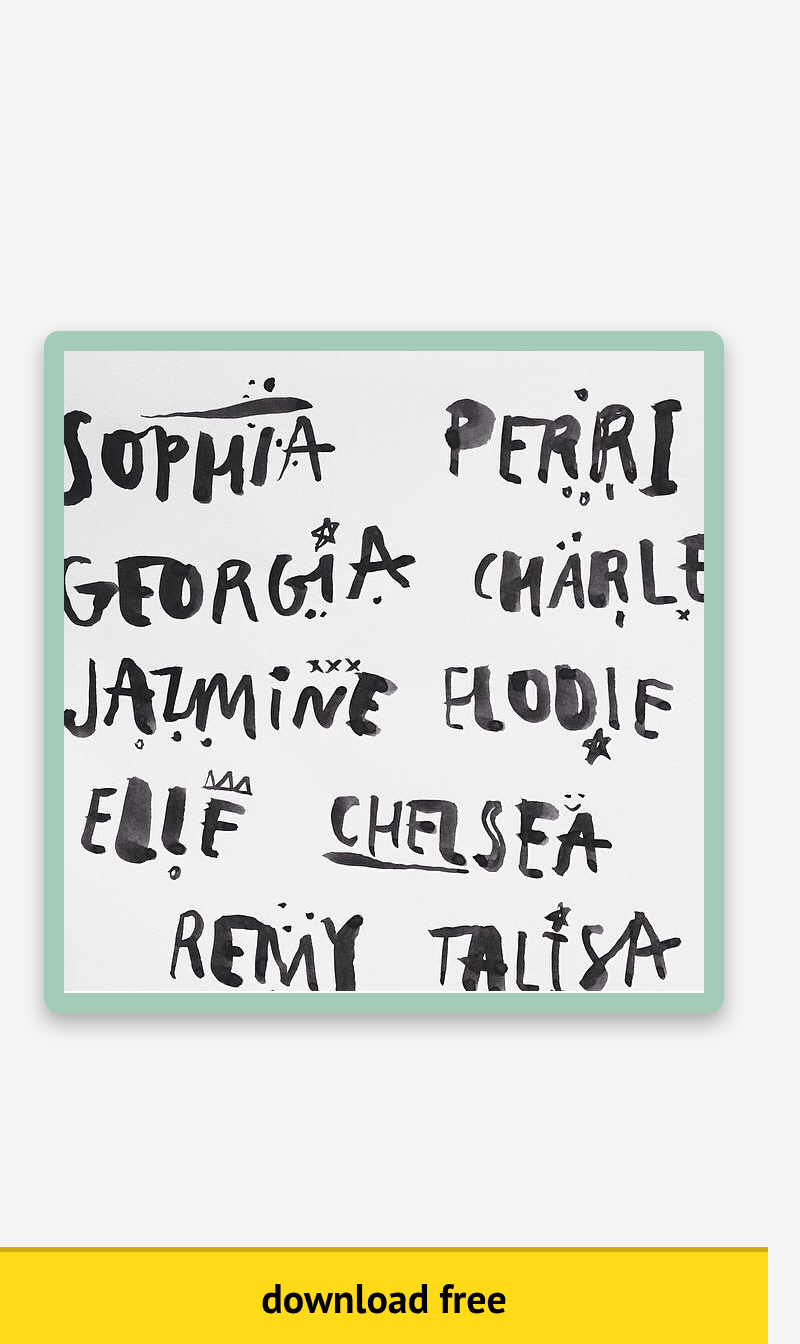 SOPHIA PERRI
GEORGIA CHARLE
JAZMINE ELODIE
ELLE CHELSEA
REMY TALISA
download free